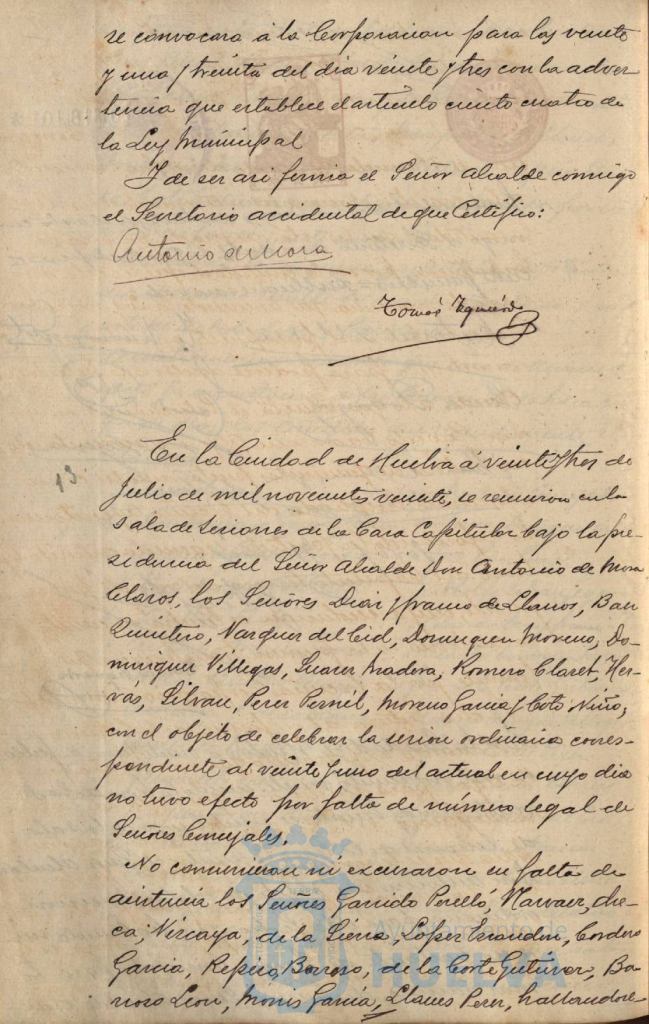 se convocara á la Corporacion para las veinte
y una y treinta del dia veinte y tres con la adver
tencia que establece el articulo ciento cuatro de
la Ley Municipal
Y de ser asi firma el Señor Alcalde conmigo
el Secretario accidental de que Certifico:
Antonio de Mora
Tomás Izquierdo
13
En la Ciudad de Huelva á veinte y tres de
Julio de mil novecientos veinte, se reunieron en la
sala de sesiones de la Casa Capitular bajo la pre-
sidencia del Señor Alcalde Don Antonio de Mora
Claros, los Señores Diaz y franco de Llanos,
Quintero, Vazquez del Cid, Dominguez Moreno, Do-
minguez Villegas, Suarez Madera, Romero Claret, Her-
vás, Silvan, Perez Pernil, Moreno Garcia y Coto Niño,
con el objeto de celebrar la sesion ordinaria corres-
pondiente al veinte y uno del actual en cuyo dia
no tuvo efecto por falta de número legal de
Señores Concejales.
No concurrieron ni excusaron su falta de
asistencia los Señores Garrido Perelló, Narvaez, che-
ca, Vizcaya, de la Sierra, Lopez Escandon, Cordero
Garcia, Repiso, Barroso, de la Corte Gutierrez, Ba-
rroso Leon, Monis Garcia, Llanes Perez, hallandose
Ayuntamiento de
HUELVA